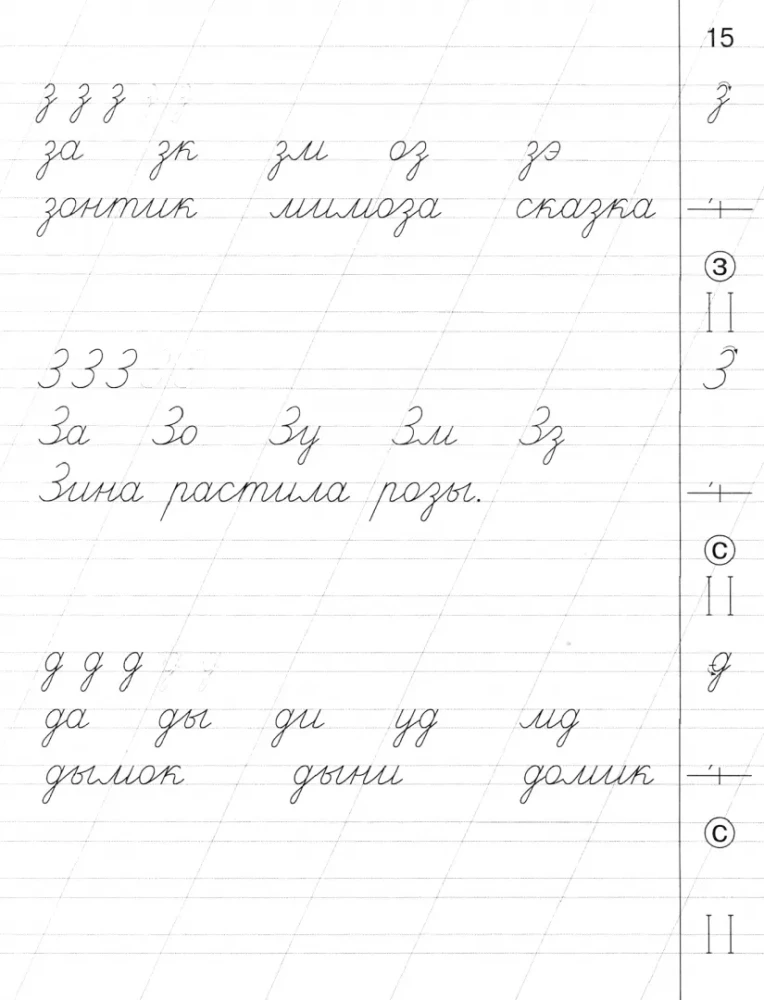 15
з з з з
за зк зм оз зэ
зонтик мимоза сказка
З
З З З З
За Зо Зу Зм Зз
Зина растила розы.
С
д д д д
да ды ди уд мд
дымок дыни домик
С